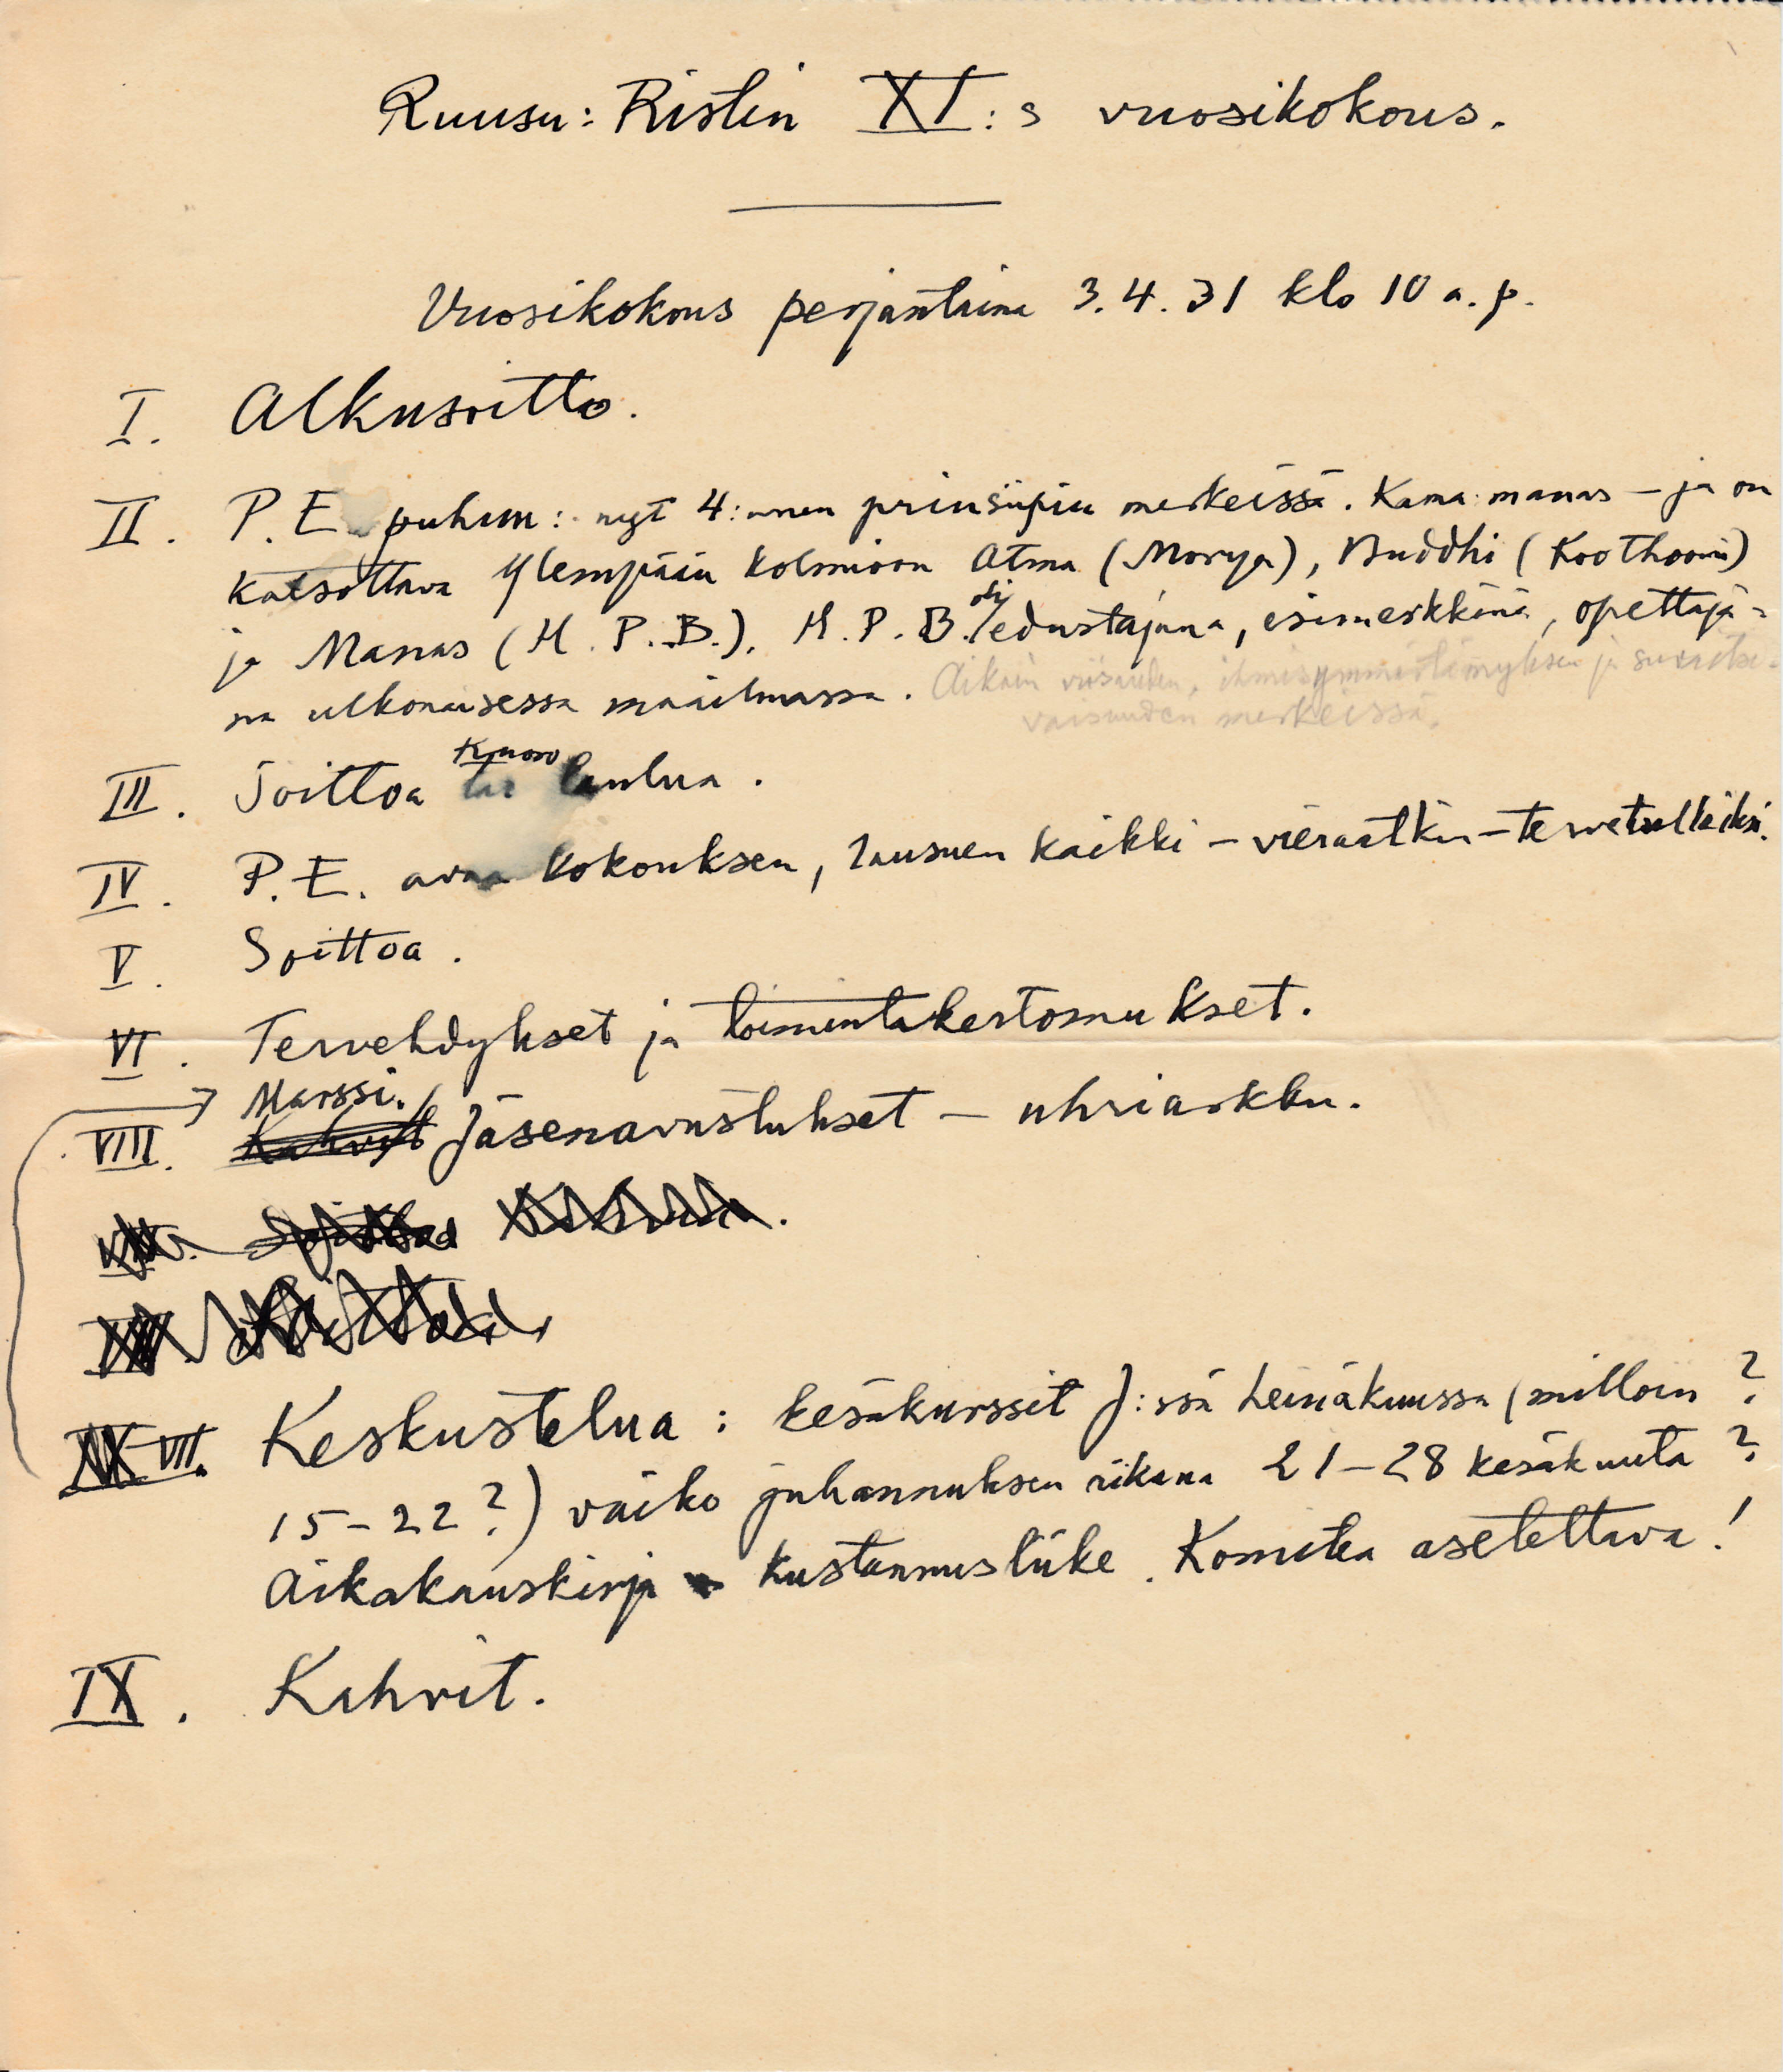 Ruusu: Ristin XI:s vuosikokous.
Vuosikokous perjantaina 3.4.31 klo 10 a.p.
I. Alkusoitto.
II. P. E. puhuu: nyt 4:nnen prinsiipin merkeissä. Kama manas – ja on
katsottava ylempään kolmioon Atma (Morya), Buddhi (Koothoomi)
ja Manas (H. P. B.). H. P. B. oli edustajana, esimerkkinä, opettaja-
na ulkonaisessa maailmassa. Aikain viisauden, ihmisymmärtämyksen ja suvaitse-
vaisuuden merkeissä.
III. Soittoa Kuoro laulua.
IV. P. E. avaa kokouksen, lausuen kaikki – vieraatkin – tervetulleiksi.
V. Soittoa.
VI. Tervehdykset ja toimintakertomukset.
Marssi.
VIII. Kahvit Jäsenavustukset – uhriarkku.
VII. Keskustelua: kesäkurssit J:ssä heinäkuussa (milloin?
15–22?) vaiko juhannuksen aikana 21–28 kesäkuuta?
Aikakauskirja kustannusliike. Komitea asetettava!
IX. Kahvit.